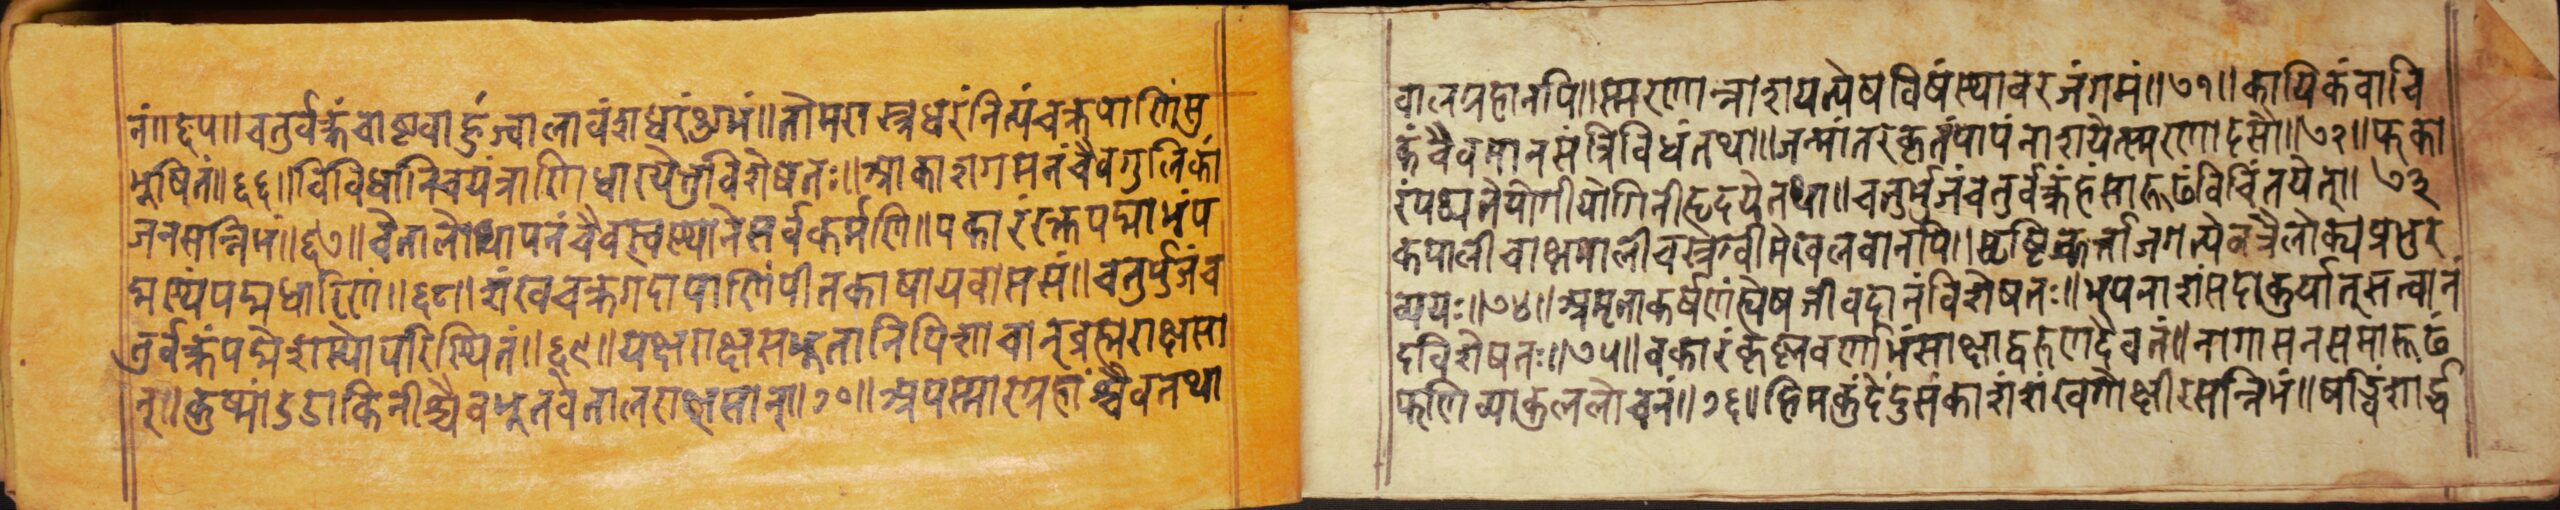 नं॥द्दप॥चतुर्वक्त्रंचोष्टवाहुंज्वालावंशधरंशुभं॥तोमरास्त्रधरंनित्यंचक्रपाणिंसु
भूषितं॥६६॥विविधानिचयंत्राणिधारयेत्तुविशेषतः॥आकाशगमनंचैवगुलिकां
जनसन्निभं॥६७॥वेतालोथापनंचैवस्वस्थानेसर्वकर्मणि॥पकारंरक्तपद्माभंप
द्मस्थंपद्मधारिणं॥६८॥शंखचक्रगदापाणिंपीतकाषायवाससं॥चतुर्भुजंच
तुर्वक्त्रंपद्मेशस्योपरिस्थितं॥६९॥यक्षराक्षसभूतानिपिशाचान्ब्रह्मराक्षसा
न्॥कुष्मांडडाकिनीश्चैवभूतवेतालराक्षसान्॥७०॥अपस्मारग्रहांश्चैवतथा
वालग्रहानपि॥स्मरणान्नाशयत्येषविषंस्थावरजंगमं॥७१॥कायिकंवाचि
कंचैवमानसंत्रिविधंतथा॥जन्मांतरेकृतंपापंनाशयेत्स्मरणादसौ॥७२॥फका
रंपठ्यतेयोगीयोगिनीहृदयेतथा॥चतुर्भुजंचतुर्वक्त्रंहंसारूढंविचिंतयेत्॥७३
कपालीचाक्षमालीचस्त्रग्वीमेखलवानपि॥सृष्टिकर्त्ताजगत्येवत्रैलोक्यप्रभुर
व्ययः॥७४॥अमृताकर्षणंह्येषजीवदानंविशेषतः॥भूपनाशंसदाकुर्यात्सत्वानं
दविशेषतः॥७५॥वकारंकृष्णवर्णाभंसाक्षाद्वरुणदैवतं॥नागासनसमारूढं
फणिव्याकुललोचनं॥७६॥हिमकुंदेंदुसंकाशंशंखगोक्षीरसन्निभं॥षड्विंशार्द्ध